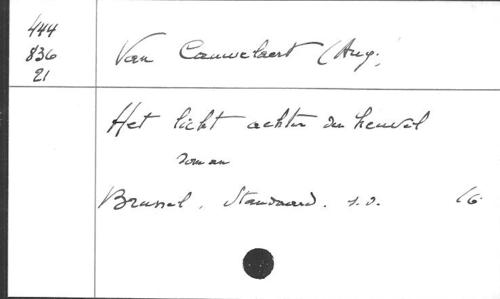 444
836
21
Van Cauwelaert (Aug.
Het licht achter den heuvel
roman
Brussel, Standaard. s.d. 16